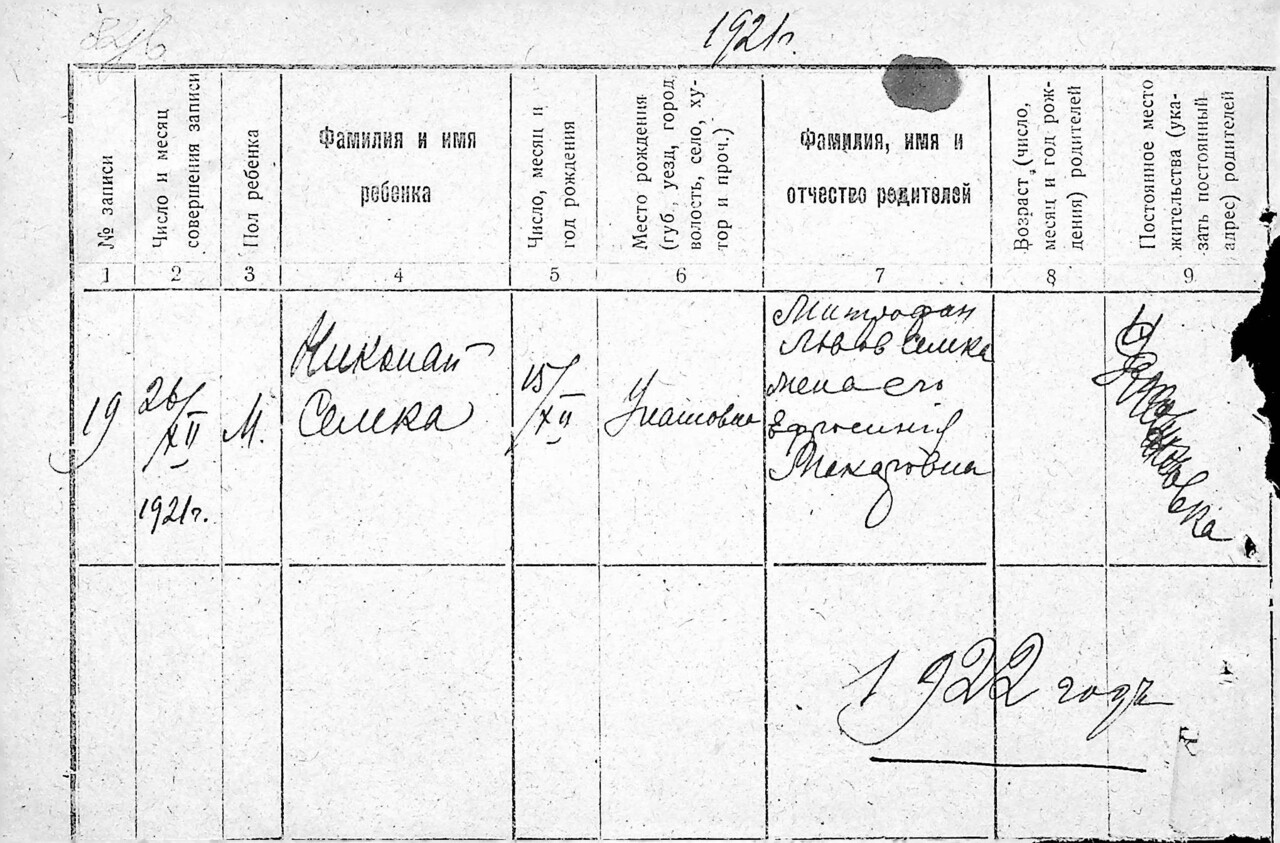 1921г.
№ записи
Число и месяц
совершения записи
Пол ребенка
Фамилия и имя
ребенка
Число, месяц и
год рождения
Место рождения
(губ., уезд, город
волость, село, ху-
тор и проч.)
Фамилия, имя и
отчество родителей
Возраст (число,
месяц и год рож-
дения) родителей
Постоянное место
жительства (ука-
зать постоянный
адрес) родителей
1 2 3 4 5 6 7 8 9
19
26/XII
1921г.
М.
Николай
Семка
15/XII
Митрофан
Львов Семка
жена его
Ефросиния
Макаровна
1922 годъ